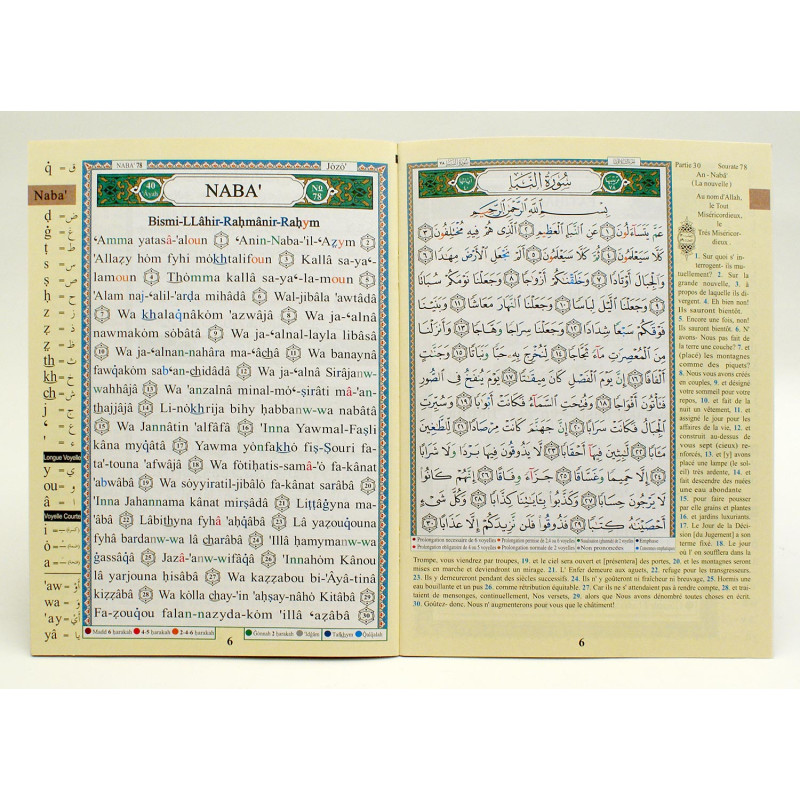 q̇ = ق
Naba'
ḍ = ض
ġ = غ
ṭ = ط
s = س
ṣ = ص
ḥ = ح
z = ز
ẓ = ظ
th = ث
kh = خ
ch = ش
j = ج
Longue Voyelle
y
ou
â
Voyelle Courte
i
ó
a
'aw = أَوْ
wa = وَ
'ay = أَيْ
yâ = يَا
NABA' 78
Jôzô'
40
Âyah
NABA'
No
78
Bismi-LLâhir-Raḥmânir-Raḥym
'Amma yatasâ-'aloun 1 'Anin-Naba-'il-'Aẓym 2
'Allaẓy hóm fyhi mókhtalifoun 3 Kallâ sa-ya'-
lamoun 4 Thómma kallâ sa-ya'-la-moun 5
'Alam naj-'alil-'arḍa mihâdâ 6 Wal-jibâla 'awtâdâ
7 Wa khalaqnâkóm 'azwâjâ 8 Wa ja-'alnâ
nawmakóm sóbâtâ 9 Wa ja-'alnal-layla libâsâ
10 Wa ja-'alnan-nahâra ma-'âchâ 11 Wa banaynâ
fawqakóm sab'an-chidâdâ 12 Wa ja-'alnâ Sirâjanw-
wahhâjâ 13 Wa 'anzalnâ minal-mó'-ṣirâti mâ-'an-
thajjâjâ 14 Li-nókhrija bihy ḥabbanw-wa nabâtâ
15 Wa Jannâtin 'alfâfâ 16 'Inna Yawmal-Faṣli
kâna myqâtâ 17 Yawma yónfakhó fiṣ-Ṣouri fa-
ta'-touna 'afwâjâ 18 Wa fótiḥatis-samâ-'ó fa-kânat
'abwâbâ 19 Wa sóyyiratil-jibâló fa-kânat sarâbâ 20
'Inna Jahannama kânat mirṣâdâ 21 Liṭṭâġyna ma-
'âbâ 22 Lâbithyna fyhâ 'aḥqâbâ 23 Lâ yaẓouqouna
fyhâ bardanw-wa lâ charâbâ 24 'Illâ ḥamymanw-wa
ġassâqâ 25 Jazâ-'anw-wifâqâ 26 'Innahóm Kânou
lâ yarjouna ḥisâbâ 27 Wa kaẓẓabou bi-'Âyâ-tinâ
kiẓẓâbâ 28 Wa kólla chay-'in 'aḥṣay-nâhó Kitâbâ 29
Fa-ẓouqou falan-nazyda-kóm 'illâ 'aẓâbâ 30
Madd 6 ḥarakah 4-5 ḥarakah 2-4-6 ḥarakah Ġonnah 2 ḥarakah 'Idġâm Tafkhym Qalqalah
6
سُورَةُ النَّبَإِ
بِسْمِ اللَّهِ الرَّحْمَٰنِ الرَّحِيمِ
عَمَّ يَتَسَآءَلُونَ ١ عَنِ ٱلنَّبَإِ ٱلْعَظِيمِ ٢ ٱلَّذِى هُمْ فِيهِ مُخْتَلِفُونَ ٣
كَلَّا سَيَعْلَمُونَ ٤ ثُمَّ كَلَّا سَيَعْلَمُونَ ٥ أَلَمْ نَجْعَلِ ٱلْأَرْضَ مِهَٰدًا ٦
وَٱلْجِبَالَ أَوْتَادًا ٧ وَخَلَقْنَٰكُمْ أَزْوَٰجًا ٨ وَجَعَلْنَا نَوْمَكُمْ سُبَاتًا
٩ وَجَعَلْنَا ٱلَّيْلَ لِبَاسًا ١٠ وَجَعَلْنَا ٱلنَّهَارَ مَعَاشًا ١١ وَبَنَيْنَا
فَوْقَكُمْ سَبْعًا شِدَادًا ١٢ وَجَعَلْنَا سِرَاجًا وَهَّاجًا ١٣ وَأَنزَلْنَا
مِنَ ٱلْمُعْصِرَٰتِ مَآءً ثَجَّاجًا ١٤ لِّنُخْرِجَ بِهِۦ حَبًّا وَنَبَاتًا ١٥ وَجَنَّٰتٍ
أَلْفَافًا ١٦ إِنَّ يَوْمَ ٱلْفَصْلِ كَانَ مِيقَٰتًا ١٧ يَوْمَ يُنفَخُ فِى ٱلصُّورِ
فَتَأْتُونَ أَفْوَاجًا ١٨ وَفُتِحَتِ ٱلسَّمَآءُ فَكَانَتْ أَبْوَٰبًا ١٩ وَسُيِّرَتِ
ٱلْجِبَالُ فَكَانَتْ سَرَابًا ٢٠ إِنَّ جَهَنَّمَ كَانَتْ مِرْصَادًا ٢١ لِّلطَّٰغِينَ
مَـَٔابًا ٢٢ لَّٰبِثِينَ فِيهَآ أَحْقَابًا ٢٣ لَّا يَذُوقُونَ فِيهَا بَرْدًا وَلَا شَرَابًا
٢٤ إِلَّا حَمِيمًا وَغَسَّاقًا ٢٥ جَزَآءً وِفَاقًا ٢٦ إِنَّهُمْ كَانُوا۟
لَا يَرْجُونَ حِسَابًا ٢٧ وَكَذَّبُوا۟ بِـَٔايَٰتِنَا كِذَّابًا ٢٨ وَكُلَّ شَىْءٍ
أَحْصَيْنَٰهُ كِتَٰبًا ٢٩ فَذُوقُوا۟ فَلَن نَّزِيدَكُمْ إِلَّا عَذَابًا ٣٠
Prolongation necessaire de 6 voyelles Prolongation permise de 2,4 ou 6 voyelles Nasalisation (ghunnah) de 2 voyelles Emphase
Prolongation obligatoire de 4 ou 5 voyelles Prolongation normale de 2 voyelles Non prononcées Consonnes emphatiques
Partie 30 Sourate 78
An - Naba'
(La nouvelle)
Au nom d'Allah,
le Tout
Miséricordieux,
le
Très Miséricor-
dieux.
1. Sur quoi s' in-
terrogent- ils mu-
tuellement? 2. Sur la
grande nouvelle, 3. à
propos de laquelle ils di-
vergent. 4. Eh bien non!
Ils sauront bientôt.
5. Encore une fois, non!
Ils sauront bientôt. 6. N'
avons- Nous pas fait de
la terre une couche? 7. et
(placé) les montagnes
comme des piquets?
8. Nous vous avons créés
en couples, 9. et désigné
votre sommeil pour votre
repos, 10. et fait de la
nuit un vêtement, 11. et
assigné le jour pour les
affaires de la vie, 12. et
construit au-dessus de
vous sept (cieux) ren-
forcés, 13. et [y] avons
placé une lampe (le sol-
eil) très ardente, 14. et
fait descendre des nuées
une eau abondante
15. pour faire pousser
par elle grains et plantes
16. et jardins luxuriants.
17. Le Jour de la Déci-
sion [du Jugement] a son
terme fixé. 18. Le jour
où l' on soufflera dans la
Trompe, vous viendrez par troupes, 19. et le ciel sera ouvert et [présentera] des portes, 20. et les montagnes seront
mises en marche et deviendront un mirage. 21. L' Enfer demeure aux aguets, 22. refuge pour les transgresseurs.
23. Ils y demeureront pendant des siècles successifs. 24. Ils n' y goûteront ni fraîcheur ni breuvage, 25. Hormis une
eau bouillante et un pus 26. comme rétribution équitable. 27. Car ils ne s' attendaient pas à rendre compte, 28. et trai-
taient de mensonges, continuellement, Nos versets, 29. alors que Nous avons dénombré toutes choses en écrit.
30. Goûtez- donc. Nous n' augmenterons pour vous que le châtiment!
6